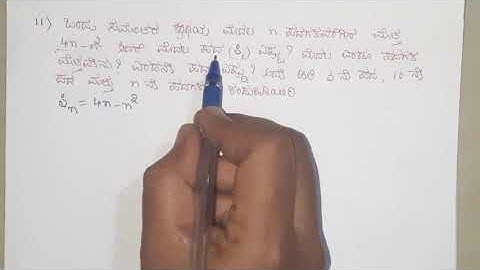 11) ಒಂದು ಸಮಾಂತರ ಶ್ರೇಢಿಯ ಮೊದಲ n ಪದಗಳವರೆಗಿನ ಮೊತ್ತ
4n-n² ಆದರೆ ಮೊದಲ ಪದ (S₁) ಎಷ್ಟು? ಮೊದಲ ಎರಡು ಪದಗಳ
ಮೊತ್ತವೇನು? ಎರಡನೇ ಪದ ಎಷ್ಟು? ಅದೇ ರೀತಿ 3 ನೇ ಪದ, 10 ನೇ
ಪದ ಮತ್ತು n ನೇ ಪದಗಳ ಕಂಡುಹಿಡಿಯಿರಿ
Sₙ = 4n-n²